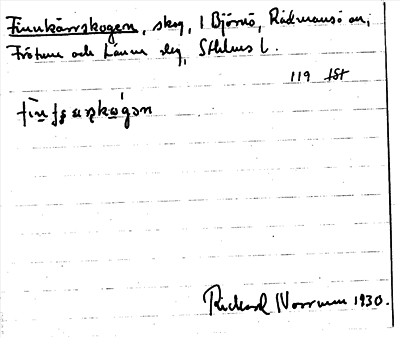 Finnkärrskogen, skog, 1 Björnö, Rådmansö sn,
Frötuna och Länna skg, Sthlms l.
119 tSt
Rickard Norrman 1930.